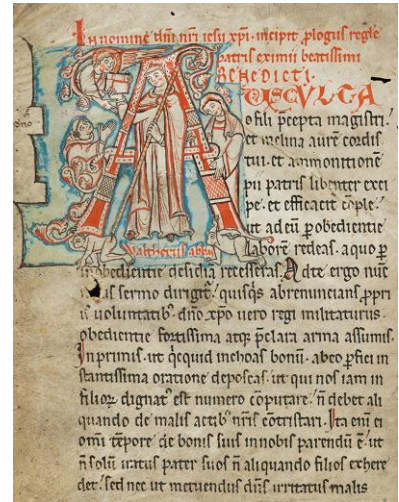 In nomine dñi nri iesu xpi. incipit plogus regle
patris eximii beatissimi
BENEDICTI.
AUSCULTA
o fili pcepta magistri.
et inclina aurē cordis
tui. et ammonitionē
pii patris libenter exci
pe. et efficacit cōple.
ut ad eū p obedientie
laborē redeas. a quo p
inobedientie desidia recesseras. Ad te ergo nūc
sermo dirigit. quisqs abrenuncians ppri
is voluntatib; dno xpo vero regi militaturus.
obedientie fortissima atq; pclara arma assumis.
Inprimis. ut qcquid inchoas bonū. ab eo pfici in
stantissima oratione deposcas. ut qui nos iam in
filioꝝ dignat est numero cōputare. ñ debet ali
quando de malis actib; nris cōtristari. Ita eni ei
omi tēpore de bonis suis in nobis parendū ē. ut
ñ solū iratus pater suos ñ aliquando filios exhere
det. sed nec ut metuendus dñs irritatus malis
Waltherius abbas